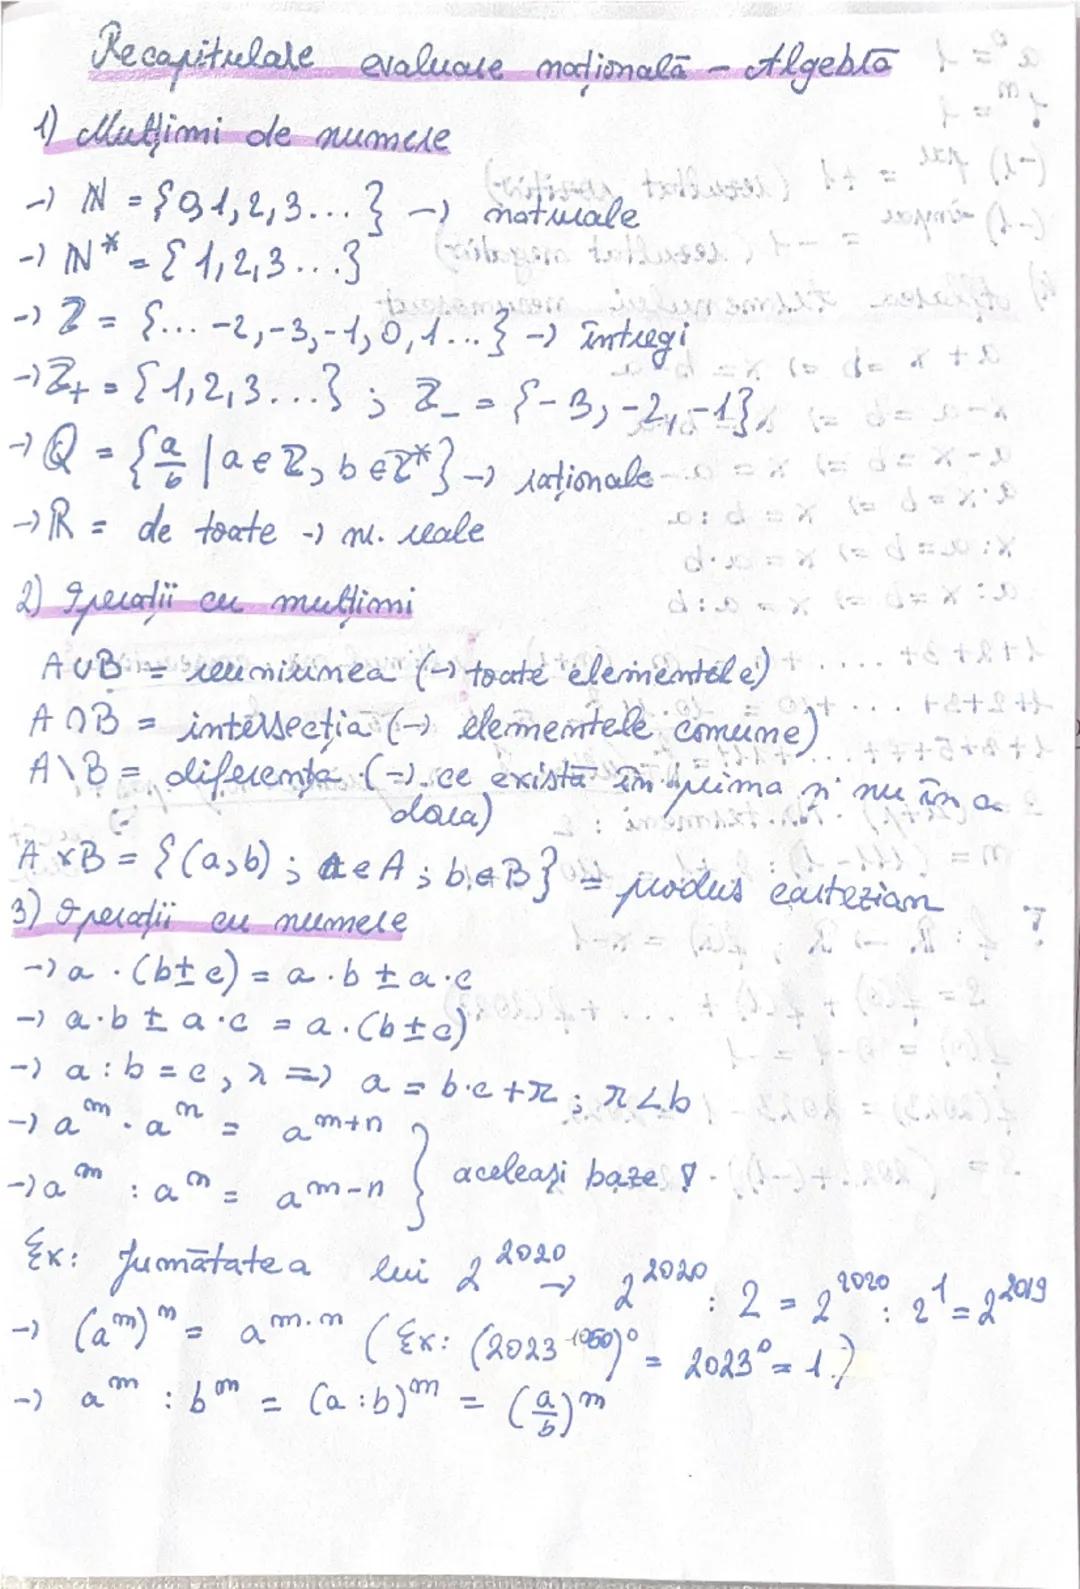 Recapitulare evaluare națională - Algebră
1) Mulțimi de numere
→ ℕ = {0,1,2,3...} → naturale
→ ℕ* = {1,2,3...}
→ ℤ = {... -2,-3,-1,0,1...} → întregi
→ ℤ₊ = {1,2,3...} ; ℤ₋ = {-3,-2,-1}
→ ℚ = {a/b | a∈ℤ, b∈ℤ*} → raționale
→ ℝ = de toate → nr. reale
2) Operații cu mulțimi
A∪B = reuniunea (→ toate elementele)
A∩B = intersecția (→ elementele comune)
A\B = diferența (→ ce există în prima și nu în a
doua)
A×B = {(a,b) ; a∈A ; b∈B} = produs cartezian
3) Operații cu numere
→ a · (b±c) = a · b ± a·c
→ a·b ± a·c = a·(b±c)
→ a : b = c, r ⇒ a = b·c + r ; r < b
→ a^m · a^n = a^(m+n)
→ a^m : a^n = a^(m-n) } aceleași baze !
Ex: Jumătatea lui 2^2020 → 2^2020 : 2 = 2^2020 : 2^1 = 2^2019
→ (a^m)^n = a^(m·n) (Ex: (2023^1050)^0 = 2023^0 = 1.)
→ a^m : b^m = (a:b)^m = (a/b)^m